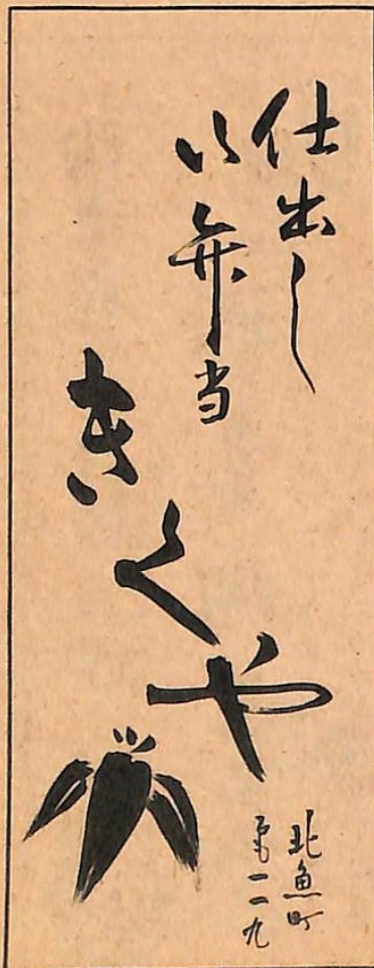 仕出し
い弁当
きくや
北魚町
電一一九